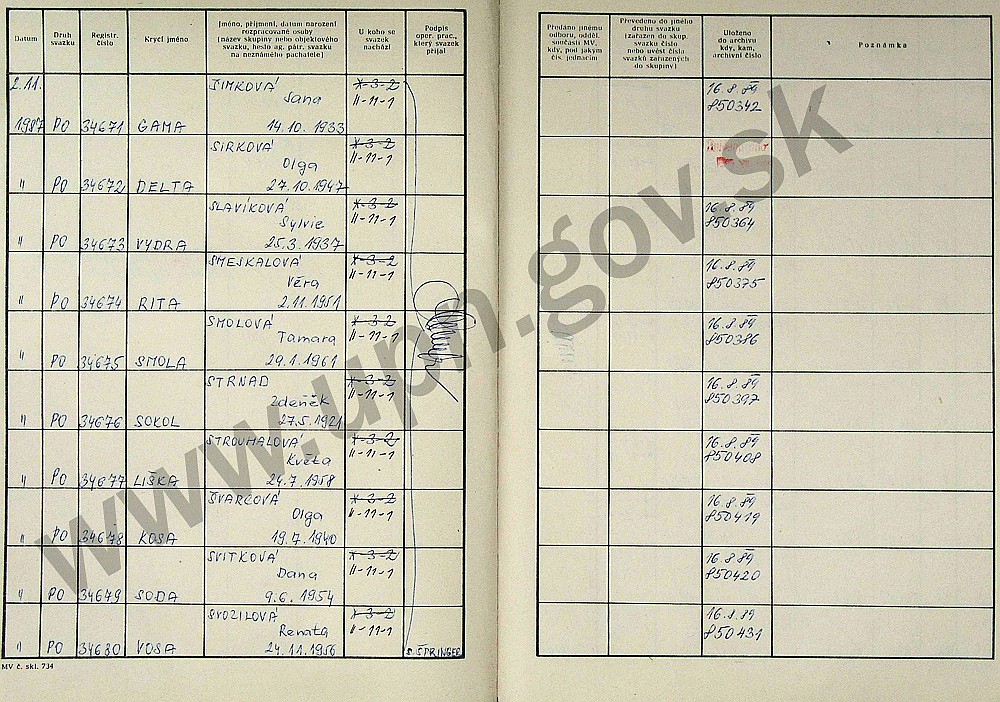 Datum
Druh svazku
Registr. číslo
Krycí jméno
Jméno, příjmení, datum narození rozpracované osoby
(název skupiny nebo objektového svazku, heslo ag. pátr. svazku na neznámého pachatele)
U koho se svazek nachází
Podpis oper. prac., který svazek přijal
Předáno jinému odboru, odděl. součásti MV, kdy, pod jakým čís. jednacím
Převedeno do jiného druhu svazku (zařazen do skup. svazku číslo nebo uvést čísla svazků zařazených do skupiny)
Uloženo do archivu kdy, kam, archivní číslo
Poznámka
2.11. ŠIMKOVÁ X-3-2 16.8.89
Jana II-11-1 850342
1987 PO 34671 GAMA 14.10.1933
SIRKOVÁ X-3-2
Olga II-11-1
" PO 34672 DELTA 27.10.1947
SLAVÍKOVÁ X-3-2 16.8.89
Sylvie II-11-1 850364
" PO 34673 VYDRA 25.3.1937
SMEJKALOVÁ X-3-2 16.8.89
Věra II-11-1 850375
" PO 34674 RITA 2.11.1951
SMOLOVÁ X-3-2 16.8.89
Tamara II-11-1 850386
" PO 34675 SMOLA 29.1.1961
STRNAD X-3-2 16.8.89
Zdeněk II-11-1 850397
" PO 34676 SOKOL 27.5.1921
STROUHALOVÁ X-3-2 16.8.89
Květa II-11-1 850408
" PO 34677 LIŠKA 24.7.1958
ŠVARCOVÁ X-3-2 16.8.89
Olga II-11-1 850419
" PO 34678 KOSA 19.7.1940
SVITKOVÁ X-3-2 16.8.89
Dana II-11-1 850420
" PO 34679 SODA 9.6.1954
SVOZILOVÁ X-3-2 16.8.89
Renata II-11-1 850431
" PO 34680 VOSA 24.11.1956 ŠPRINGER
MV č. skl. 734
www.upn.gov.sk